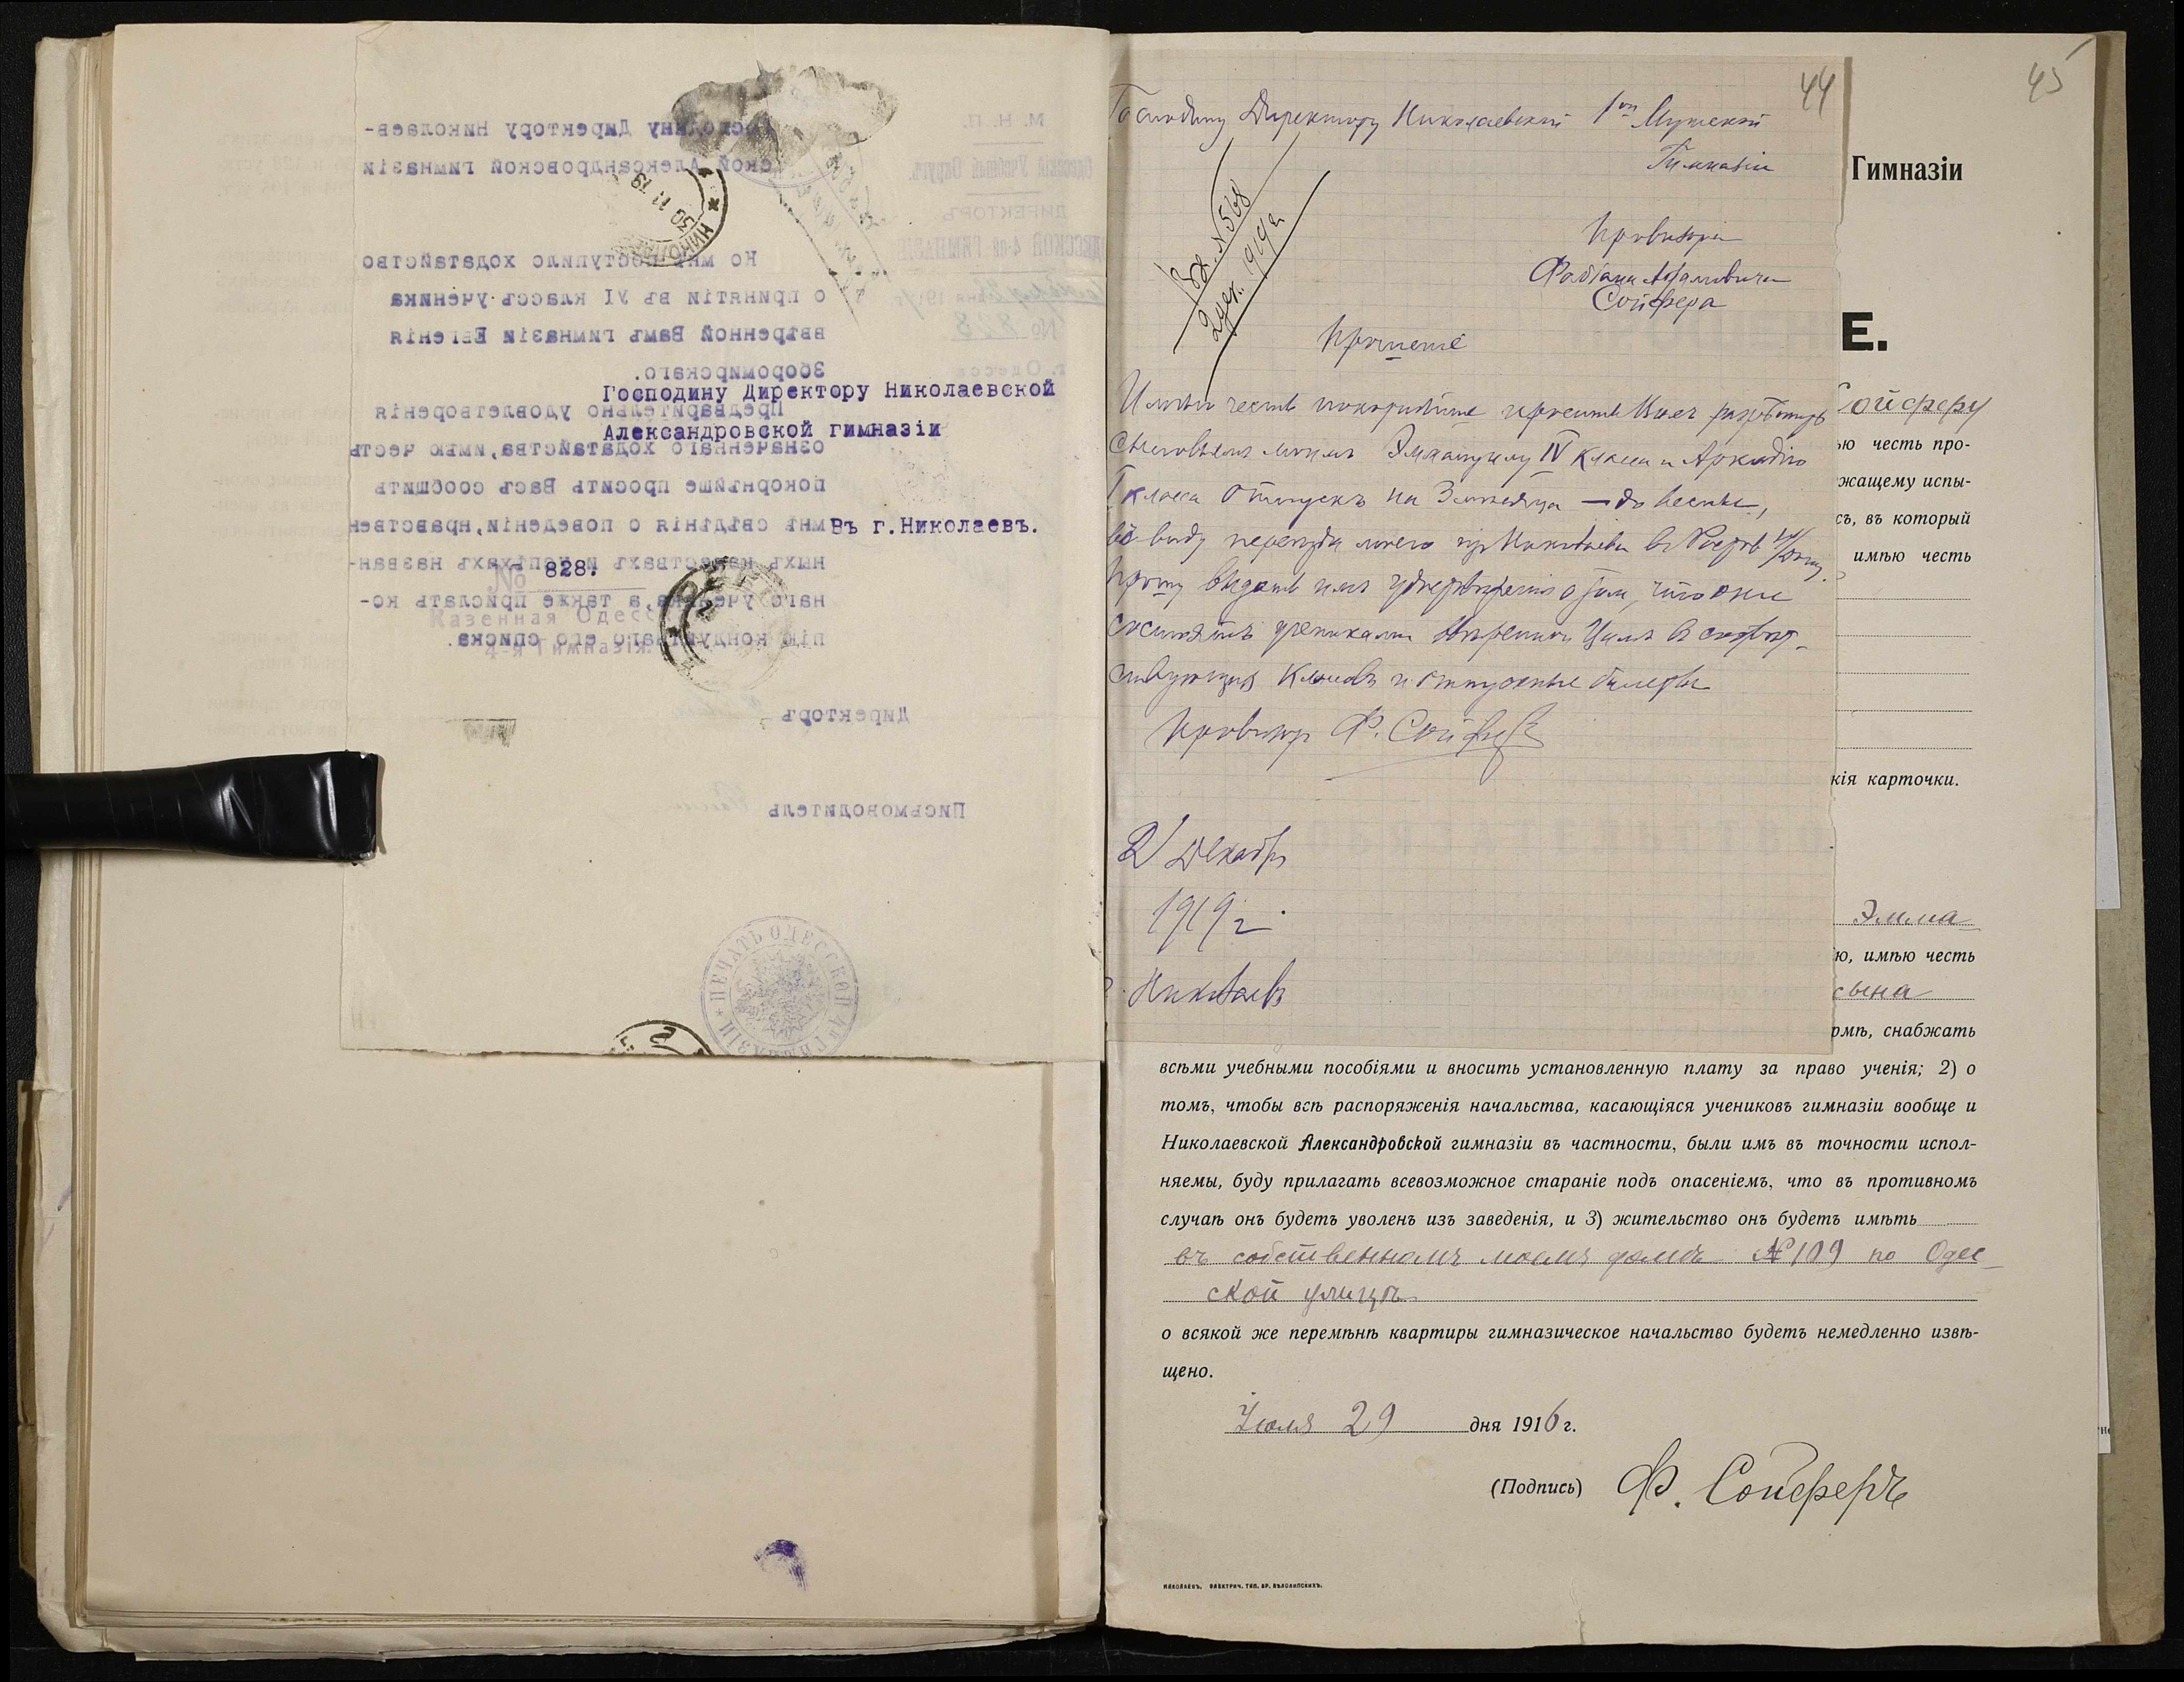 Господину Директору Николаев-
ской Александровской гимназіи
Ко мнѣ поступило ходатайство
о принятіи въ VI классъ ученика
ввѣренной Вамъ гимназіи Евгенія
Зборомирскаго.
Предварительно удовлетворенія
означеннаго ходатайства, имѣю честь
покорнѣйше просить Васъ сообщить
мнѣ свѣдѣнія о поведеніи, нравствен
ныхъ качествахъ и успѣхахъ назван-
наго ученика, а также прислать ко-
пію кондуитнаго его списка.
Директоръ
Письмоводитель
М. Н. П.
Одесскій Учебный Округъ.
ДИРЕКТОРЪ
ОДЕССКОЙ 4-ой ГИМНАЗІИ
№ 828
г. Одесса
Господину Директору Николаевской
Александровской гимназіи
Въ г.Николаевъ.
№ 828.
Казенная Одесс
4-я Гимназія.
19 11 50
НИКОЛА
ПЕЧАТЬ ОДЕССКОЙ 4й ГИМНАЗІИ
44
Господину Директору Николаевской 1ой Мужской
Гимназіи
Провизора
Фабіана
Сойфера
Вх. № 568
2 дек. 1919 г.
Прошеніе
Имѣю честь покорнѣйше просить Васъ разрѣшить
сыновьямъ моимъ Эммануилу IV класса и Аркадію
I класса отпускъ на 3 мѣсяца — до весны,
въ виду переѣзда моего изъ Николаева въ Ростов н/Дону.
Прошу выдать имъ удостовѣреніе о том, что они
состоятъ учениками ввѣренной Вамъ в соотвѣт-
ствующихъ классахъ и отпускные билеты
Провизор Ф. Сойферъ
2/ Декабр
1919 г.
г. Николаевъ
45
Гимназіи
Е.
Сойферу
ью честь про-
жащему испы-
съ, въ который
имѣю честь
кія карточки.
Эмма
ю, имѣю честь
сына
рмѣ, снабжать
всѣми учебными пособіями и вносить установленную плату за право ученія; 2) о
томъ, чтобы всѣ распоряженія начальства, касающіяся учениковъ гимназіи вообще и
Николаевской Александровской гимназіи въ частности, были имъ въ точности испол-
няемы, буду прилагать всевозможное стараніе подъ опасеніемъ, что въ противномъ
случаѣ онъ будетъ уволенъ изъ заведенія, и 3) жительство онъ будетъ имѣть
въ собственномъ моемъ домѣ № 109 по Одес
ской улицѣ
о всякой же перемѣнѣ квартиры гимназическое начальство будетъ немедленно извѣ-
щено.
Іюля 29 дня 1916 г.
(Подпись) Ф. Сойферъ
НИКОЛАЕВЪ, ЭЛЕКТРИЧ. ТИП. БР. БѢЛОЛИПСКИХЪ.